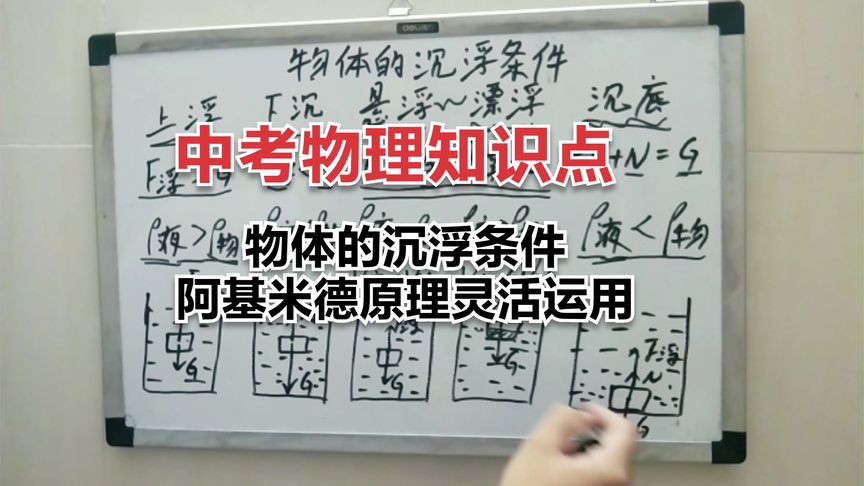 deli
物体的沉浮条件
上浮 下沉 悬浮 漂浮 沉底
中考物理知识点
+N=G
F浮
ρ液>ρ物 ρ液<ρ物
物体的沉浮条件
阿基米德原理灵活运用
F浮
N
G G G G G